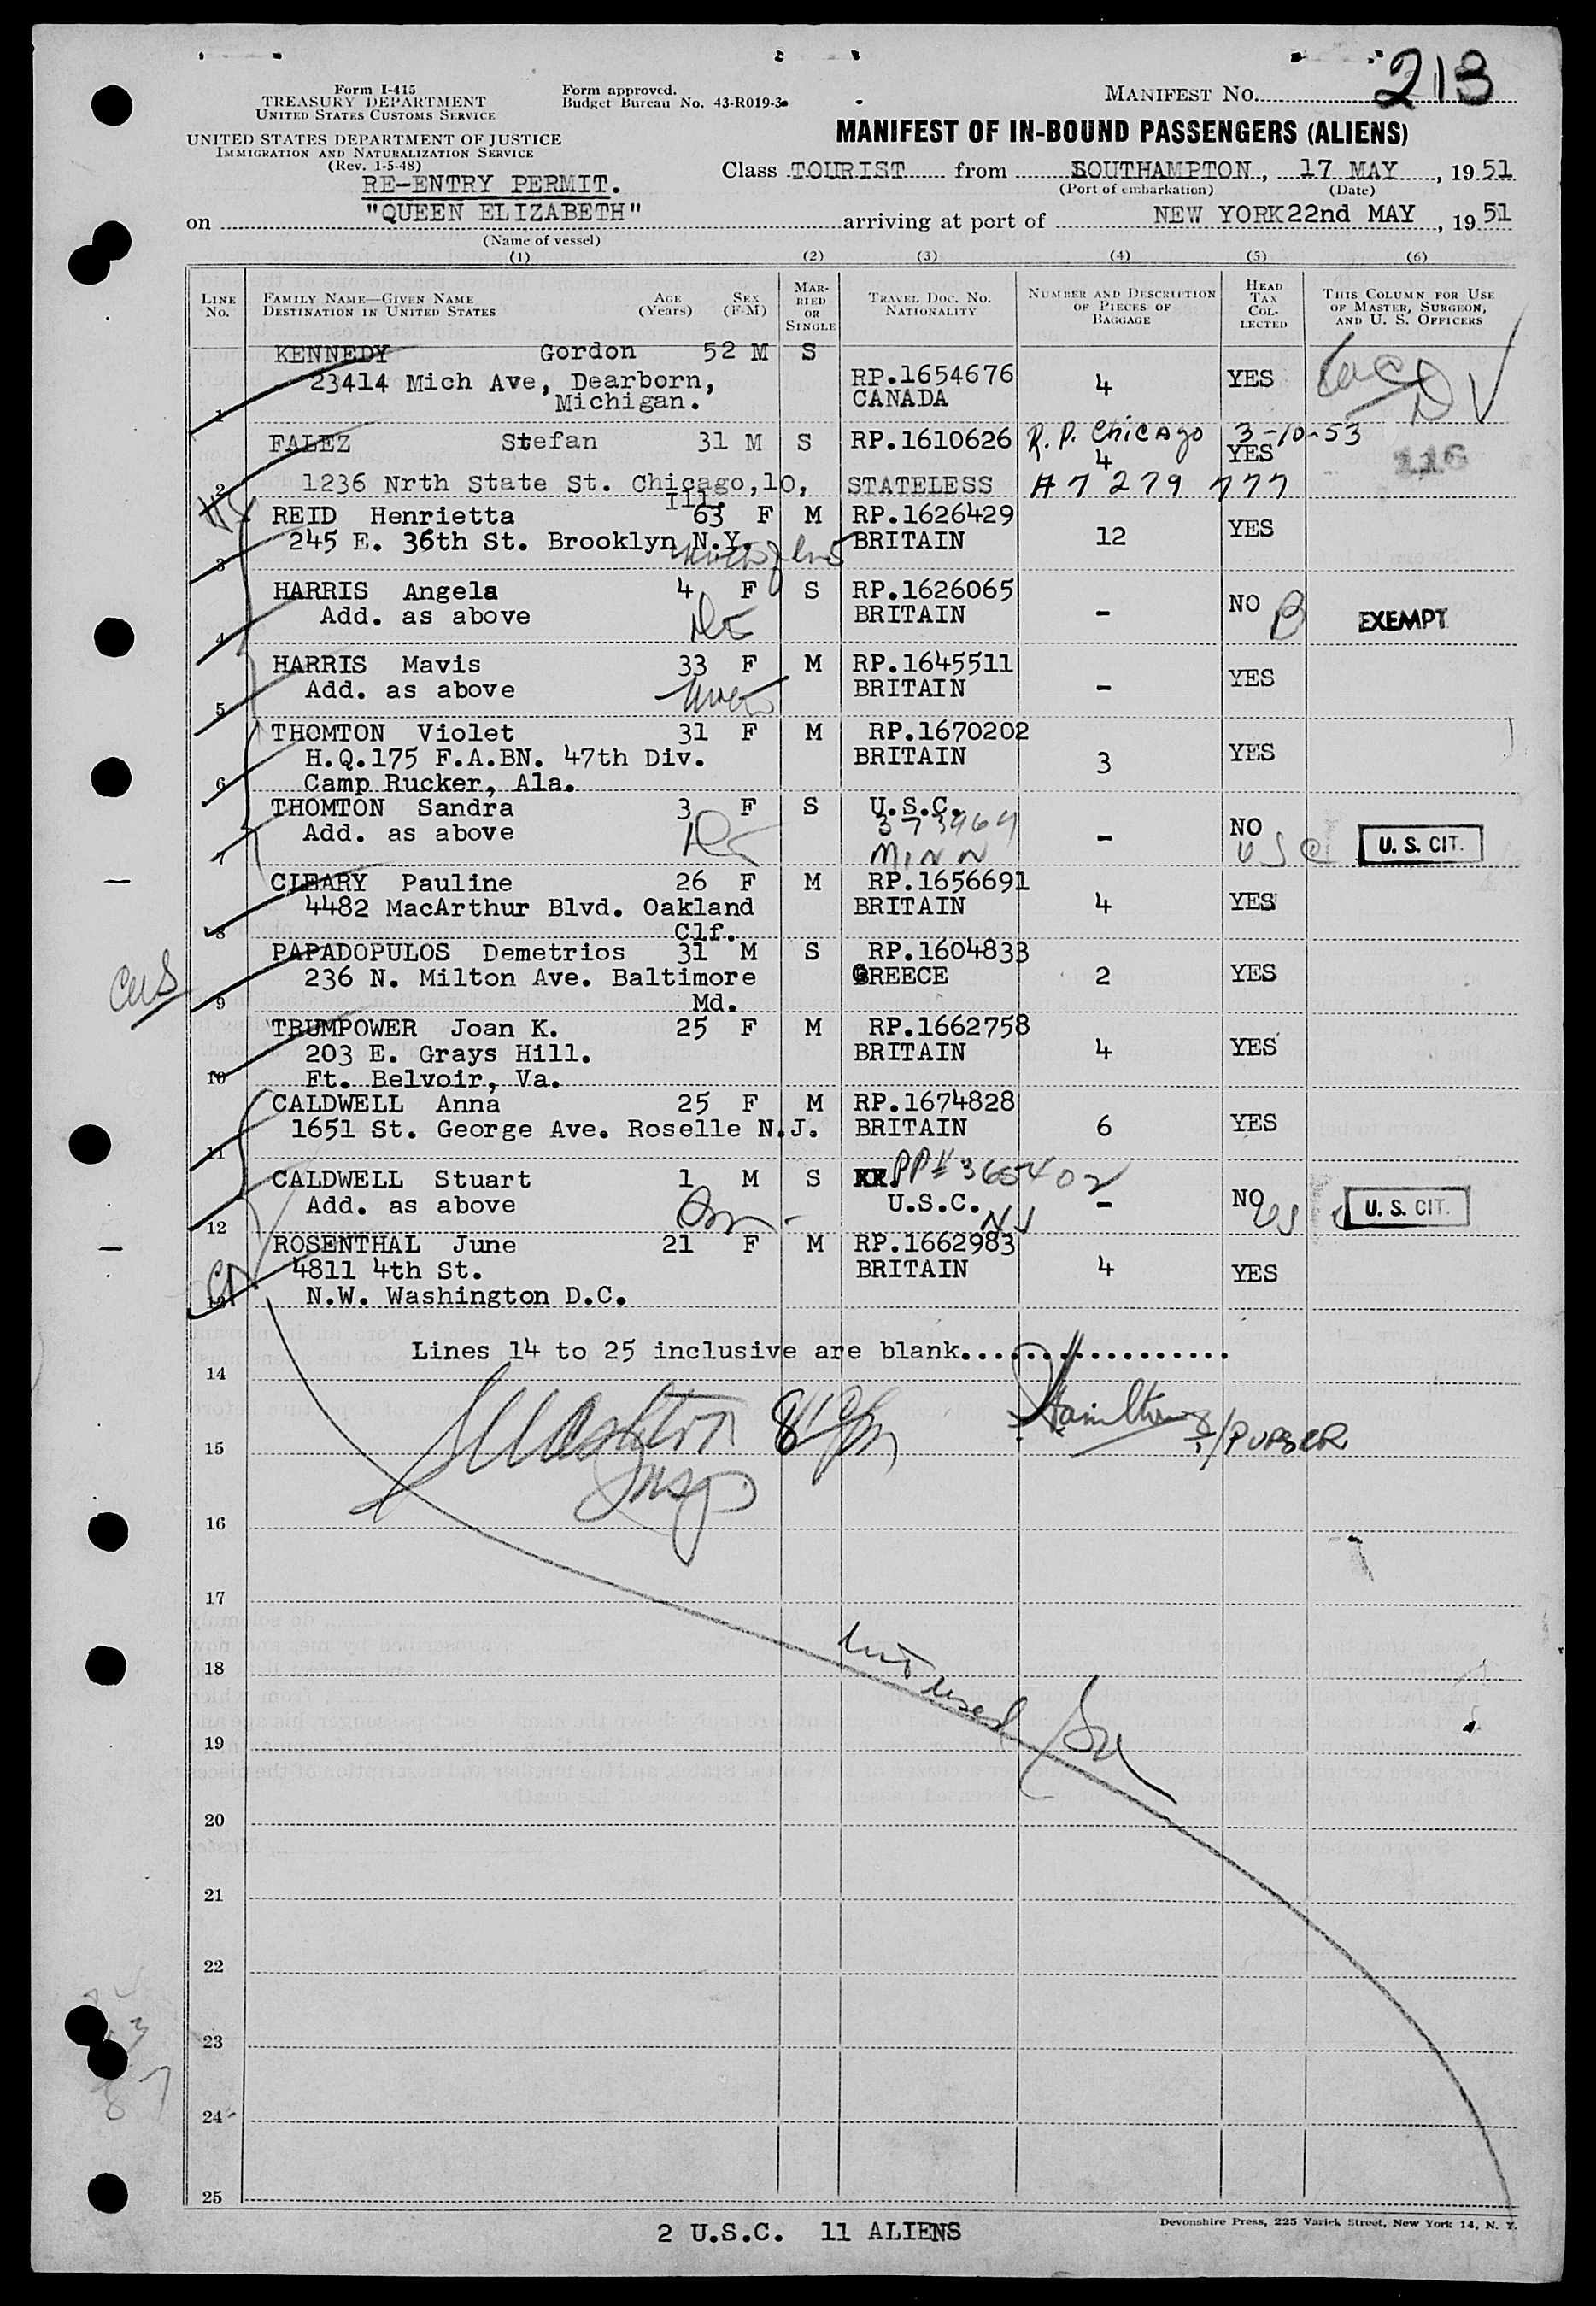 Form I-415
TREASURY DEPARTMENT
UNITED STATES CUSTOMS SERVICE
Form approved.
Budget Bureau No. 43-R019-3
MANIFEST NO. 213
UNITED STATES DEPARTMENT OF JUSTICE
IMMIGRATION AND NATURALIZATION SERVICE
(Rev. 1-5-48)
MANIFEST OF IN-BOUND PASSENGERS (ALIENS)
Class TOURIST from SOUTHAMPTON, 17 MAY, 1951
(Port of embarkation) (Date)
RE-ENTRY PERMIT.
on "QUEEN ELIZABETH" arriving at port of NEW YORK 22nd MAY, 1951
(Name of vessel)
(1) (2) (3) (4) (5) (6)
LINE NO. FAMILY NAME—GIVEN NAME DESTINATION IN UNITED STATES AGE (Years) SEX (F-M) MARRIED OR SINGLE TRAVEL DOC. NO. NATIONALITY NUMBER AND DESCRIPTION OF PIECES OF BAGGAGE HEAD TAX COLLECTED THIS COLUMN FOR USE OF MASTER, SURGEON, AND U. S. OFFICERS
KENNEDY Gordon 52 M S
23414 Mich Ave, Dearborn, RP.1654676 4 YES
1 Michigan. CANADA
FALEZ Stefan 31 M S RP.1610626 R.P. Chicago 3-10-53
4 YES 116
2 1236 Nrth State St. Chicago,10, STATELESS A7 279 777
Ill.
REID Henrietta 63 F M RP.1626429 YES
3 245 E. 36th St. Brooklyn N.Y. BRITAIN 12
HARRIS Angela 4 F S RP.1626065 NO
4 Add. as above BRITAIN - B EXEMPT
HARRIS Mavis 33 F M RP.1645511 YES
5 Add. as above BRITAIN -
THOMTON Violet 31 F M RP.1670202 YES
H.Q.175 F.A.BN. 47th Div. BRITAIN 3
6 Camp Rucker, Ala.
THOMTON Sandra 3 F S U.S.C.
Add. as above 373964 - NO
7 MINN USC U. S. CIT.
CLEARY Pauline 26 F M RP.1656691
4482 MacArthur Blvd. Oakland BRITAIN 4 YES
8 Clf.
PAPADOPULOS Demetrios 31 M S RP.1604833
236 N. Milton Ave. Baltimore GREECE 2 YES
9 Md.
TRUMPOWER Joan K. 25 F M RP.1662758
203 E. Grays Hill. BRITAIN 4 YES
10 Ft. Belvoir, Va.
CALDWELL Anna 25 F M RP.1674828
11 1651 St. George Ave. Roselle N.J. BRITAIN 6 YES
CALDWELL Stuart 1 M S PP# 365402
12 Add. as above U.S.C. NJ - NO US U. S. CIT.
ROSENTHAL June 21 F M RP.1662983
4811 4th St. BRITAIN 4 YES
13 N.W. Washington D.C.
Lines 14 to 25 inclusive are blank..................
14
15 Hamilton /PURSER
Insp
16
17
18 not used
19
20
21
22
23
24
25
2 U.S.C. 11 ALIENS
Devonshire Press, 225 Varick Street, New York 14, N. Y.